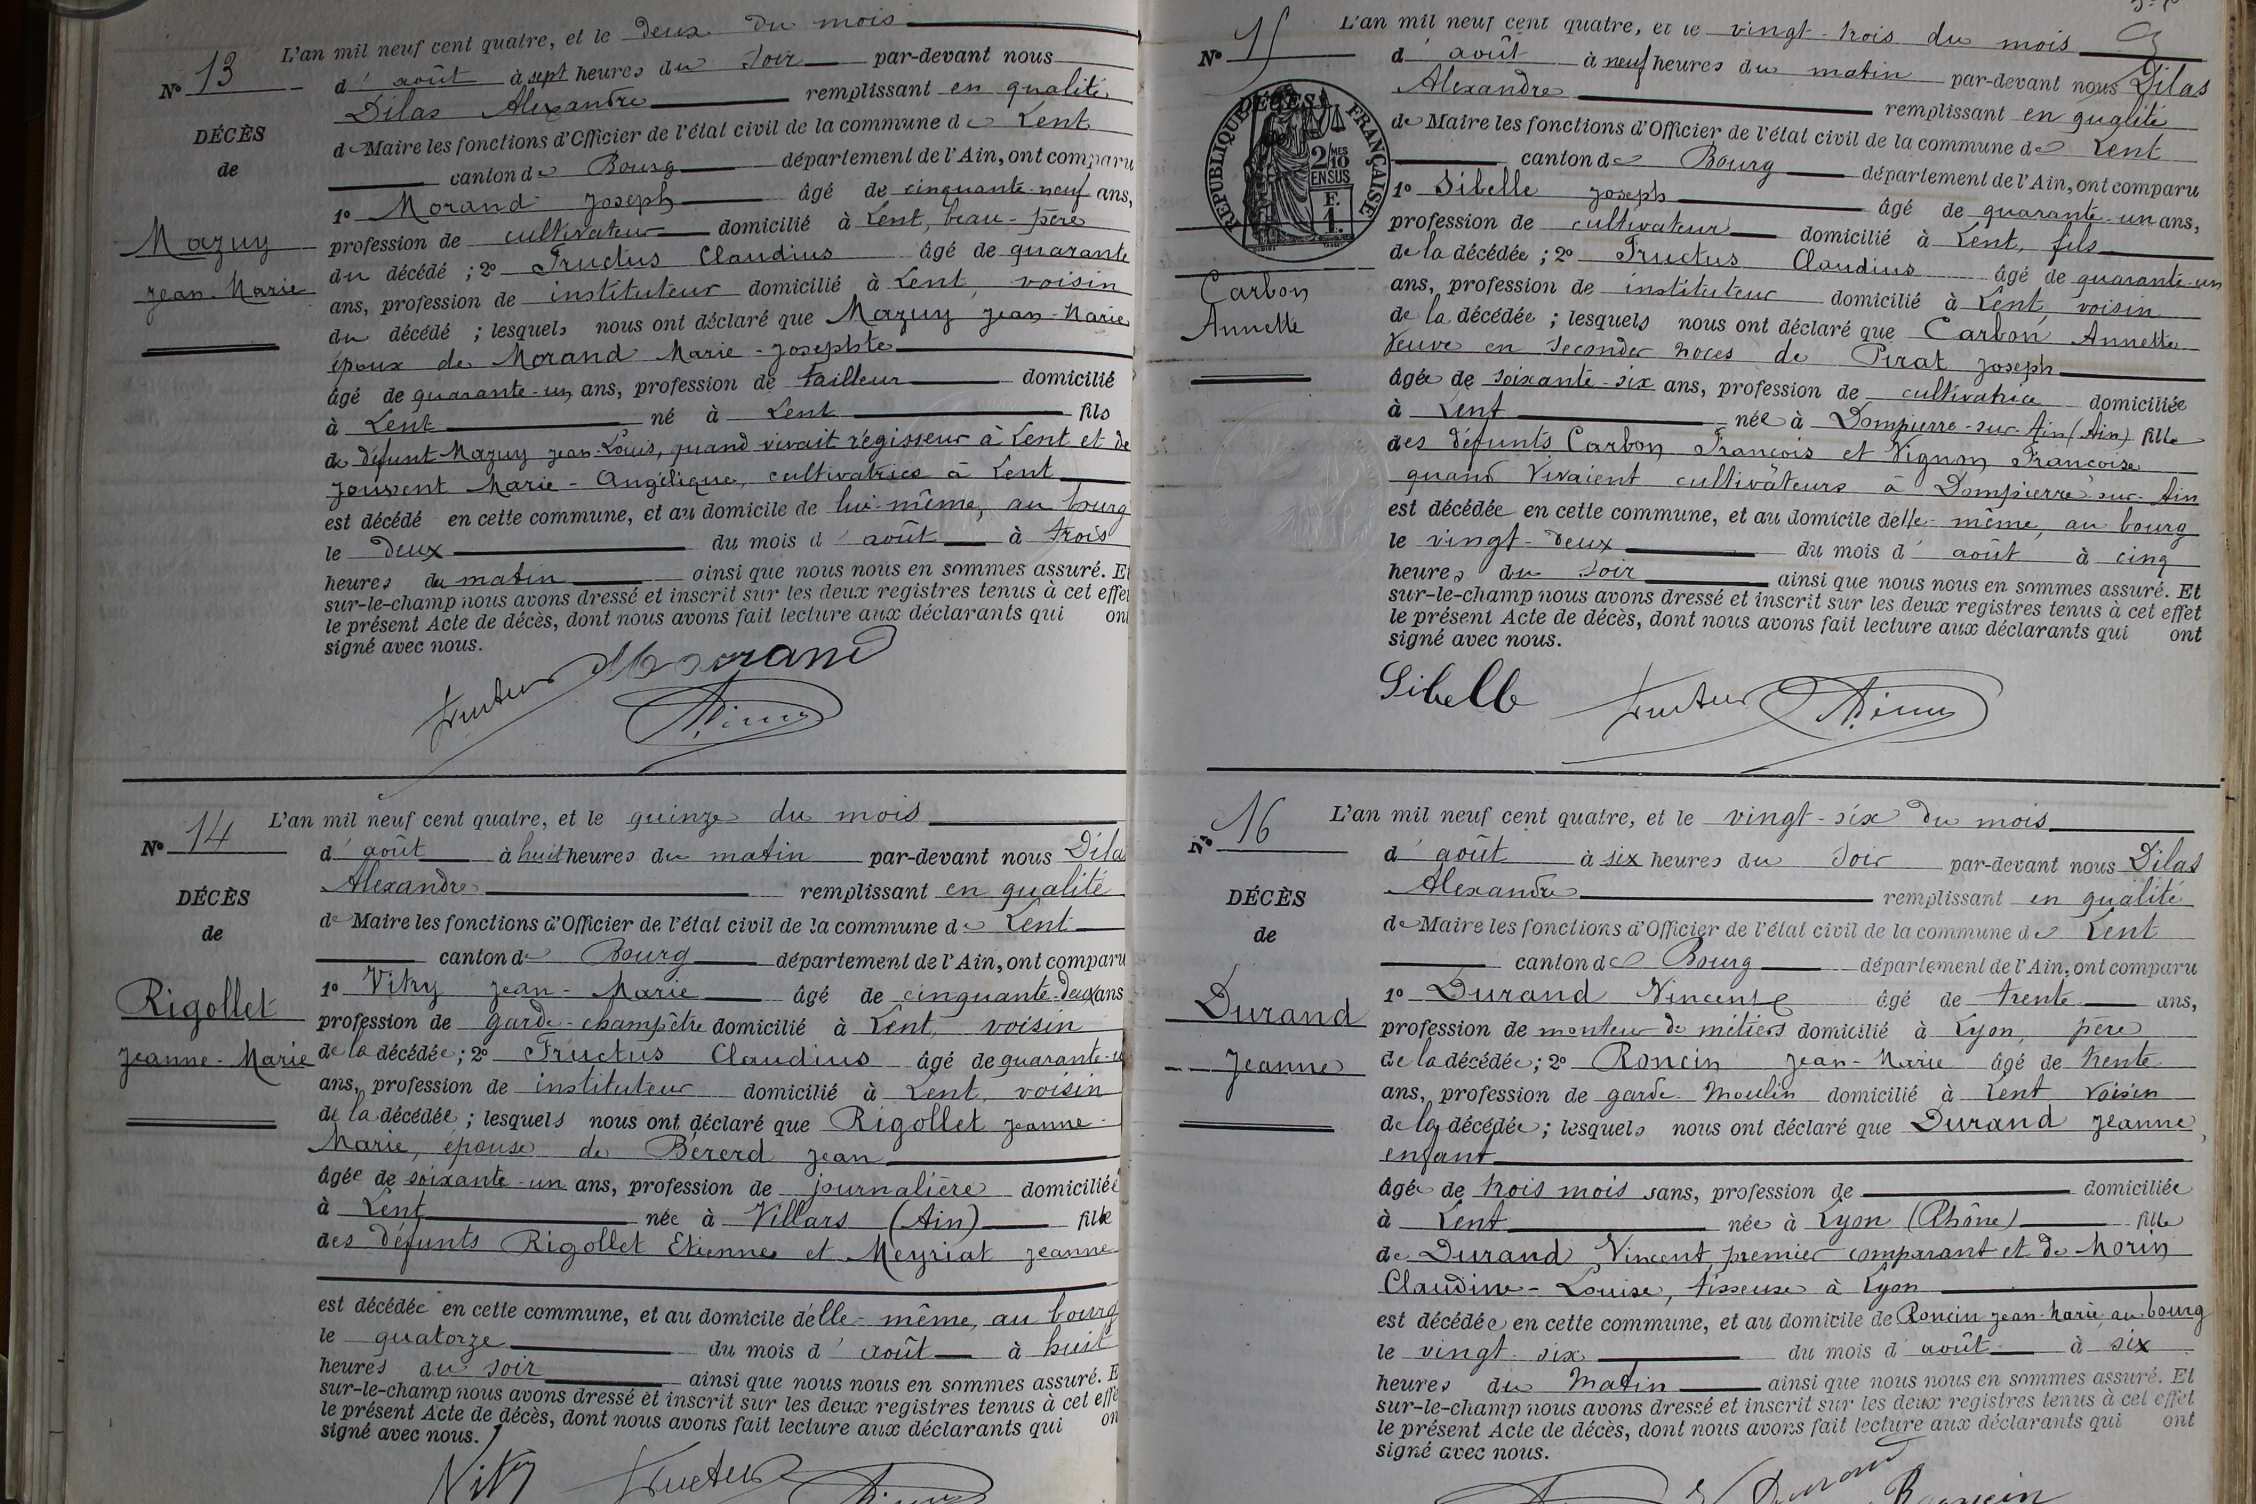 L'an mil neuf cent quatre, et le deux du mois
N° 13
d'août à sept heures du soir par-devant nous
Dilas Alexandre remplissant en qualité
DÉCÈS
de Maire les fonctions d'Officier de l'état civil de la commune de Lent
de
canton de Bourg département de l'Ain, ont comparu
1° Morand Joseph âgé de cinquante-neuf ans,
Mazuy
profession de cultivateur domicilié à Lent, beau-père
du décédé ; 2° Fructus Claudius âgé de quarante
Jean-Marie
ans, profession de instituteur domicilié à Lent, voisin
du décédé ; lesquels nous ont déclaré que Mazuy Jean-Marie
époux de Morand Marie-Josephte
âgé de quarante-un ans, profession de tailleur domicilié
à Lent né à Lent fils
de défunt Mazuy Jean-Louis, quand vivait régisseur à Lent et de
Jouvent Marie-Angélique, cultivatrice à Lent
est décédé en cette commune, et au domicile de lui-même, au bourg
le deux du mois d'août à trois
heures du matin ainsi que nous nous en sommes assuré. Et
sur-le-champ nous avons dressé et inscrit sur les deux registres tenus à cet effet
le présent Acte de décès, dont nous avons fait lecture aux déclarants qui ont
signé avec nous.
Morand
Fructus
Dilas
L'an mil neuf cent quatre, et le quinze du mois
N° 14
d'août à huit heures du matin par-devant nous Dila
Alexandre remplissant en qualité
DÉCÈS
de Maire les fonctions d'Officier de l'état civil de la commune de Lent
de
canton de Bourg département de l'Ain, ont comparu
1° Vitry Jean-Marie âgé de cinquante-deux ans
Rigollet
profession de garde-champêtre domicilié à Lent, voisin
Jeanne-Marie
de la décédée ; 2° Fructus Claudius âgé de quarante-u
ans, profession de instituteur domicilié à Lent, voisin
de la décédée ; lesquels nous ont déclaré que Rigollet Jeanne-
Marie, épouse de Bererd Jean
âgée de soixante-un ans, profession de journalière domiciliée
à Lent née à Villars (Ain) fille
des défunts Rigollet Etienne et Meyriat Jeanne
est décédée en cette commune, et au domicile d'elle-même, au bourg
le quatorze du mois d'août à huit
heures du soir ainsi que nous nous en sommes assuré. E
sur-le-champ nous avons dressé et inscrit sur les deux registres tenus à cet effe
le présent Acte de décès, dont nous avons fait lecture aux déclarants qui on
signé avec nous.
Vitry Fructus Dilas
L'an mil neuf cent quatre, et le vingt-trois du mois
N° 15
d'août à neuf heures du matin par-devant nous Dilas
Alexandre remplissant en qualité
DÉCÈS
RÉPUBLIQUE FRANÇAISE
2/10 MES EN SUS
F. 1.
de Maire les fonctions d'Officier de l'état civil de la commune de Lent
canton de Bourg département de l'Ain, ont comparu
1° Sibelle Joseph âgé de quarante-un ans,
profession de cultivateur domicilié à Lent, fils
de la décédée ; 2° Fructus Claudius âgé de quarante-un
Carbon
ans, profession de instituteur domicilié à Lent, voisin
Annette
de la décédée ; lesquels nous ont déclaré que Carbon Annette
veuve en secondes noces de Pirat Joseph
âgée de soixante-six ans, profession de cultivatrice domiciliée
à Lent née à Dompierre-sur-Ain (Ain) fille
des défunts Carbon François et Vignon Françoise
quand vivaient cultivateurs à Dompierre-sur-Ain
est décédée en cette commune, et au domicile d'elle-même, au bourg
le vingt-deux du mois d'août à cinq
heures du soir ainsi que nous nous en sommes assuré. Et
sur-le-champ nous avons dressé et inscrit sur les deux registres tenus à cet effet
le présent Acte de décès, dont nous avons fait lecture aux déclarants qui ont
signé avec nous.
Sibelle Fructus Dilas
L'an mil neuf cent quatre, et le vingt-six du mois
N° 16
d'août à six heures du soir par-devant nous Dilas
Alexandre remplissant en qualité
DÉCÈS
de Maire les fonctions d'Officier de l'état civil de la commune de Lent
de
canton de Bourg département de l'Ain, ont comparu
1° Durand Vincent âgé de trente ans,
Durand
profession de monteur de métiers domicilié à Lyon, père
Jeanne
de la décédée ; 2° Roncin Jean-Marie âgé de trente
ans, profession de garde-moulin domicilié à Lent voisin
de la décédée ; lesquels nous ont déclaré que Durand Jeanne,
enfant
âgée de trois mois sans, profession de domiciliée
à Lent née à Lyon (Rhône) fille
de Durand Vincent premier comparant et de Morin
Claudine-Louise, tisseuse à Lyon
est décédée en cette commune, et au domicile de Roncin Jean-Marie, au bourg
le vingt-six du mois d'août à six
heures du matin ainsi que nous nous en sommes assuré. Et
sur-le-champ nous avons dressé et inscrit sur les deux registres tenus à cet effet
le présent Acte de décès, dont nous avons fait lecture aux déclarants qui ont
signé avec nous.
Durand Roncin